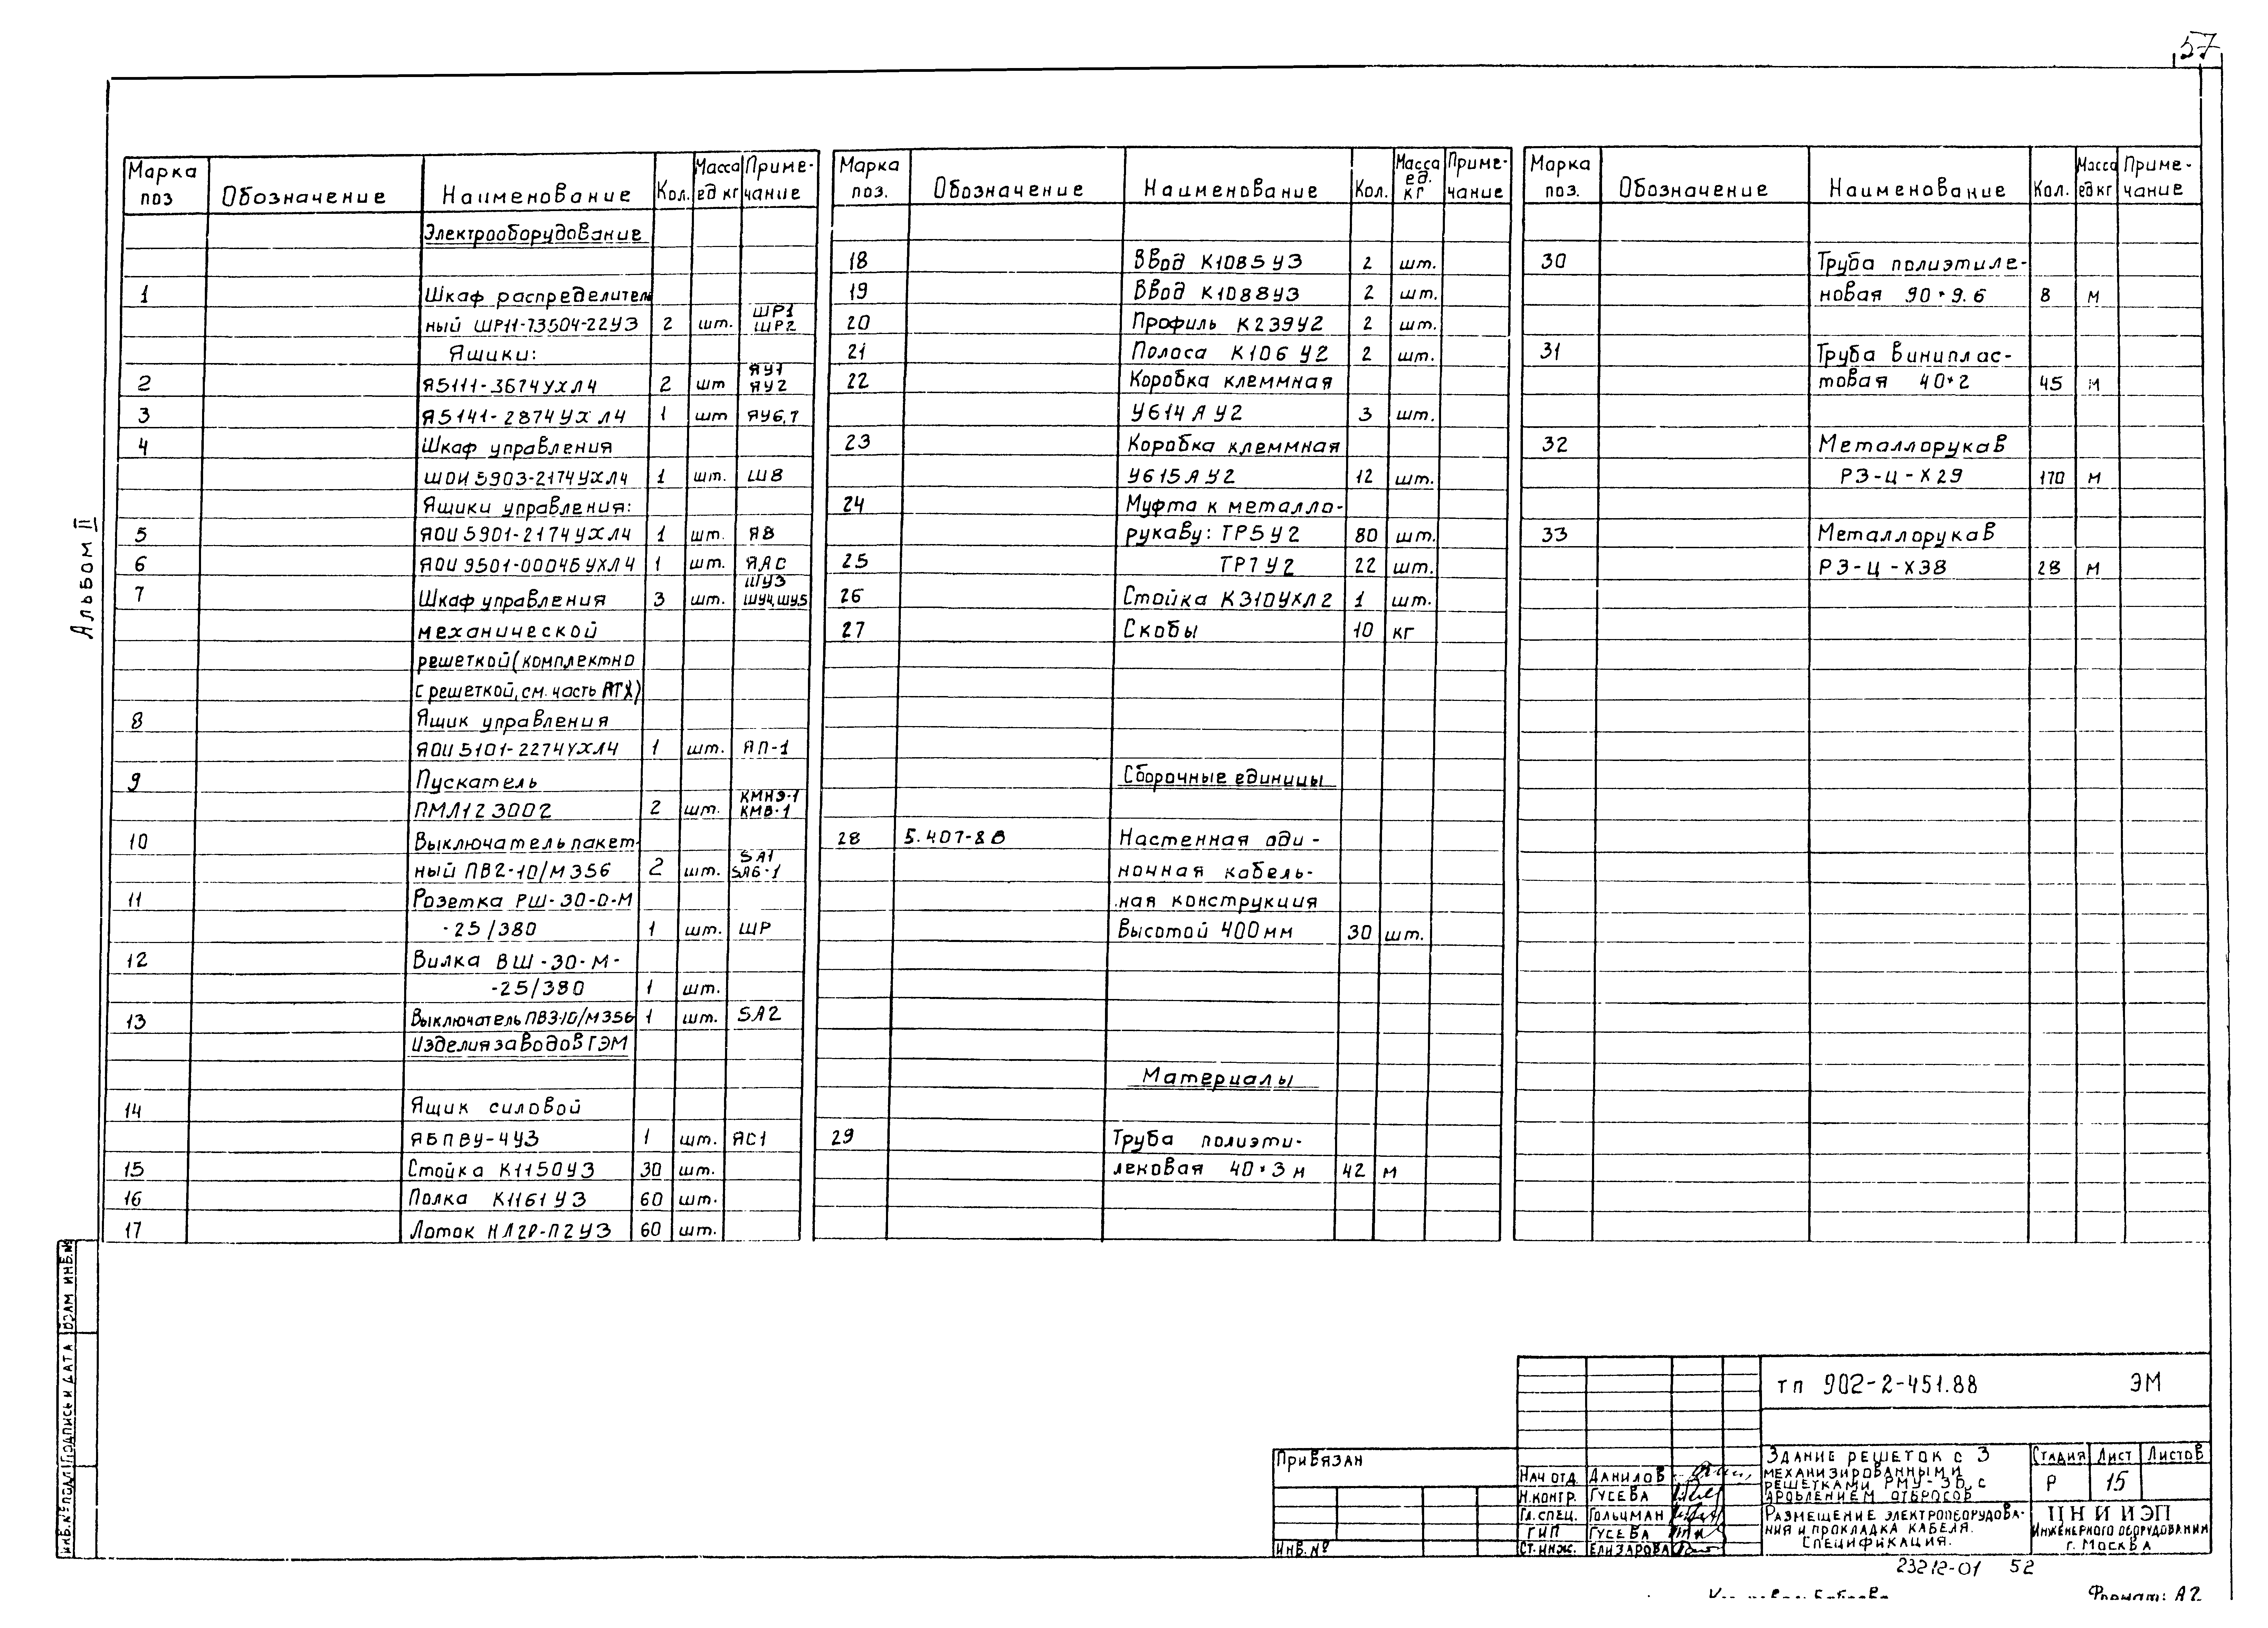 57
Альбом II
Марка поз Обозначение Наименование Кол. Масса ед кг Приме-чание
Электрооборудование
1 Шкаф распределитель
ный ШР11-73504-22У3 2 шт. ШР1 ШР2
Ящики:
2 Я5111-3674УХЛ4 2 шт ЯУ1 ЯУ2
3 Я5141-2874УХЛ4 1 шт ЯУ6,7
4 Шкаф управления
ШОИ5903-2174УХЛ4 1 шт. Ш8
Ящики управления:
5 ЯОИ5901-2174УХЛ4 1 шт. Я8
6 ЯОИ9501-00046УХЛ4 1 шт. ЯАС
7 Шкаф управления 3 шт. ШУ3 ШУ4, ШУ5
механической
решеткой (комплектно
с решеткой, см. часть АТХ)
8 Ящик управления
ЯОИ5101-2274УХЛ4 1 шт. ЯП-1
9 Пускатель
ПМЛ123002 2 шт. КМНЭ-1 КМВ-1
10 Выключатель пакет-
ный ПВ2-10/М356 2 шт. SA1 SA6-1
11 Розетка РШ-30-0-М
-25/380 1 шт. ШР
12 Вилка ВШ-30-М-
-25/380 1 шт.
13 Выключатель ПВ3-10/М356 1 шт. SA2
Изделия заводов ГЭМ
14 Ящик силовой
ЯБПВУ-4У3 1 шт. ЯС1
15 Стойка К1150У3 30 шт.
16 Полка К1161У3 60 шт.
17 Лоток НЛ20-П2У3 60 шт.
Марка поз. Обозначение Наименование Кол. Масса ед. кг Приме-чание
18 Ввод К1085У3 2 шт.
19 Ввод К1088У3 2 шт.
20 Профиль К239У2 2 шт.
21 Полоса К106У2 2 шт.
22 Коробка клеммная
У614АУ2 3 шт.
23 Коробка клеммная
У615АУ2 12 шт.
24 Муфта к металло-
рукаву: ТР5У2 80 шт.
25 ТР7У2 22 шт.
26 Стойка К310УХЛ2 1 шт.
27 Скобы 10 кг
Сборочные единицы
28 5.407-88 Настенная оди-
ночная кабель-
ная конструкция
высотой 400 мм 30 шт.
Материалы
29 Труба полиэти-
леновая 40*3 м 42 м
Марка поз. Обозначение Наименование Кол. Масса ед кг Приме-чание
30 Труба полиэтиле-
новая 90*9.6 8 м
31 Труба виниплас-
товая 40*2 45 м
32 Металлорукав
РЗ-Ц-Х29 170 м
33 Металлорукав
РЗ-Ц-Х38 28 м
ИНВ.№ ПОДЛ ПОДПИСЬ И ДАТА ВЗАМ ИНВ.№
тп 902-2-451.88 ЭМ
Привязан
Инв.№
Нач отд. Данилов
Н.контр. Гусева
Гл.спец. Гольцман
ГИП Гусева
Ст.инж. Елизарова
Здание решеток с 3
механизированными
решетками РМУ-3Б, с
дроблением отбросов
Стадия Лист Листов
Р 15
Размещение электрооборудова-
ния и прокладка кабеля.
Спецификация.
ЦНИИЭП
инженерного оборудования
г. Москва
23212-01 52
Формат: А2